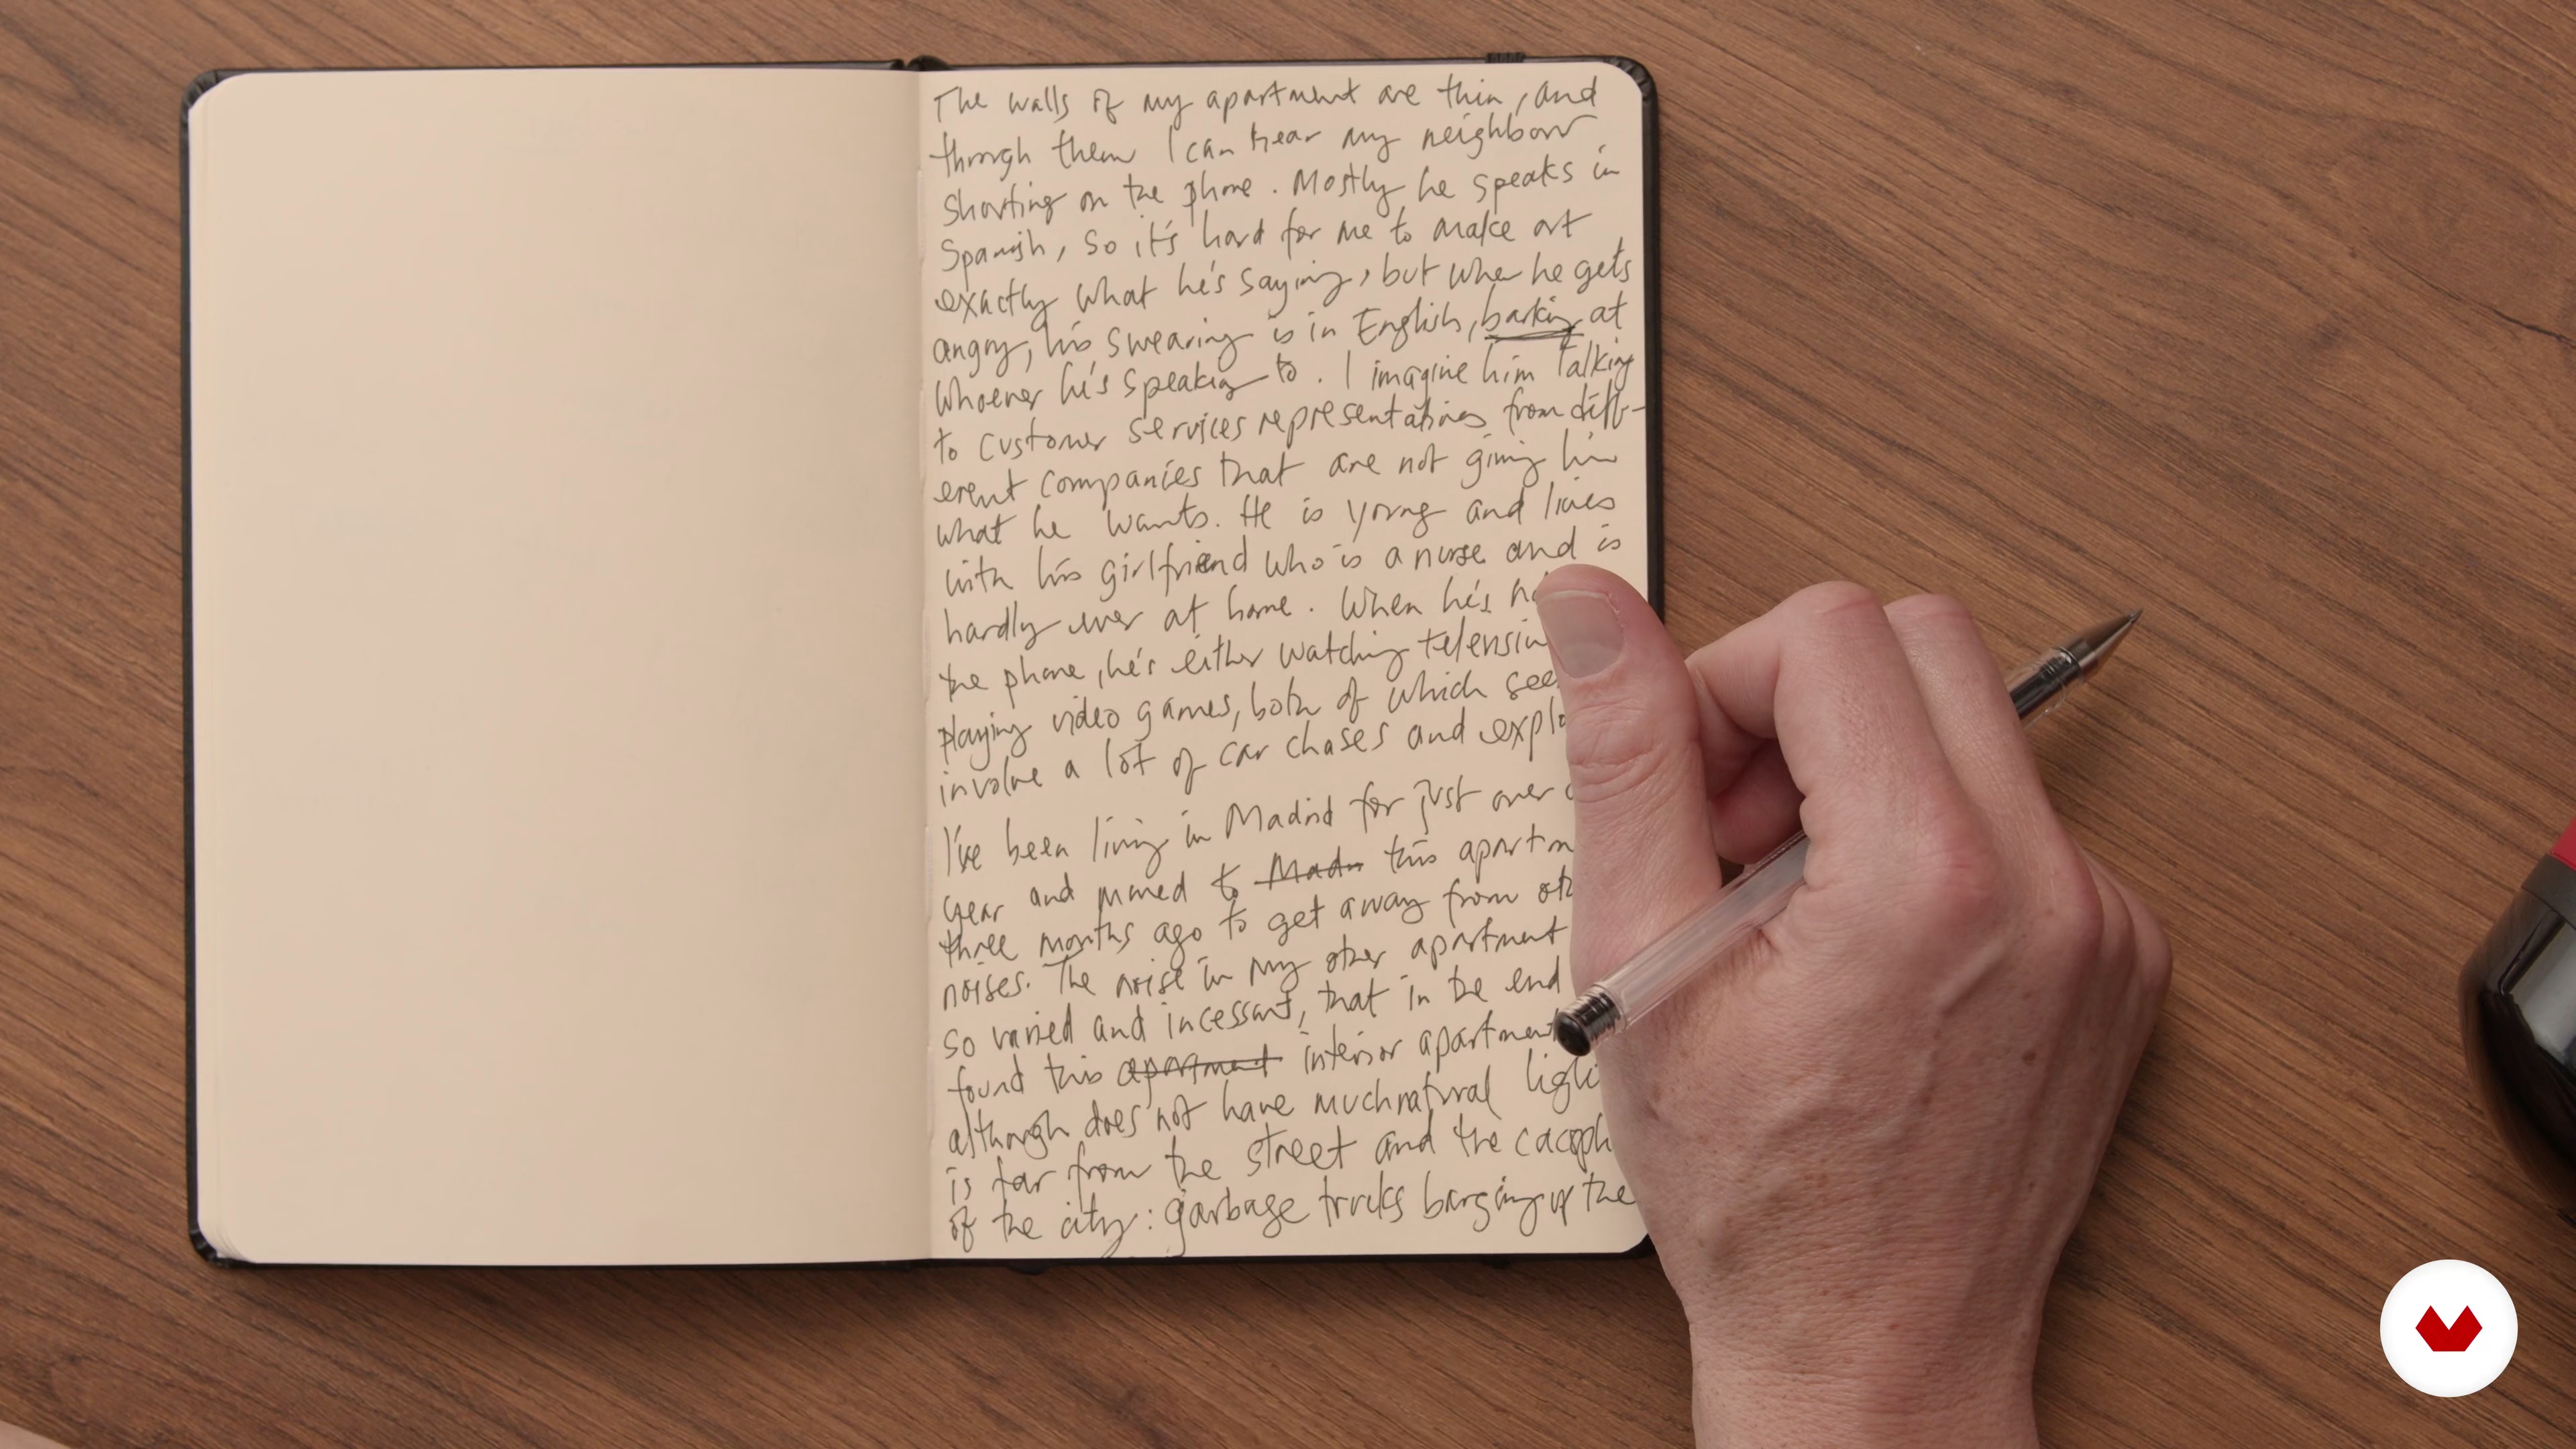 The walls of my apartment are thin, and
through them I can hear my neighbour
shouting on the phone. Mostly he speaks in
Spanish, so it's hard for me to make out
exactly what he's saying, but when he gets
angry, his swearing is in English, barking at
whoever he's speaking to. I imagine him talking
to customer services representatives from diff-
erent companies that are not giving him
what he wants. He is young and lives
with his girlfriend who is a nurse and is
hardly ever at home. When he's
the phone, he's either watching
playing video games, both of which
involve a lot of car chases and
I've been living in Madrid for just over
year and moved to Madr this
three months ago to get away from
noises. The noise in my other apartment
so varied and incessant, that in the end
found this apartment interior apartment
although does not have much natural
is far from the street and the
of the city: garbage trucks barging up the